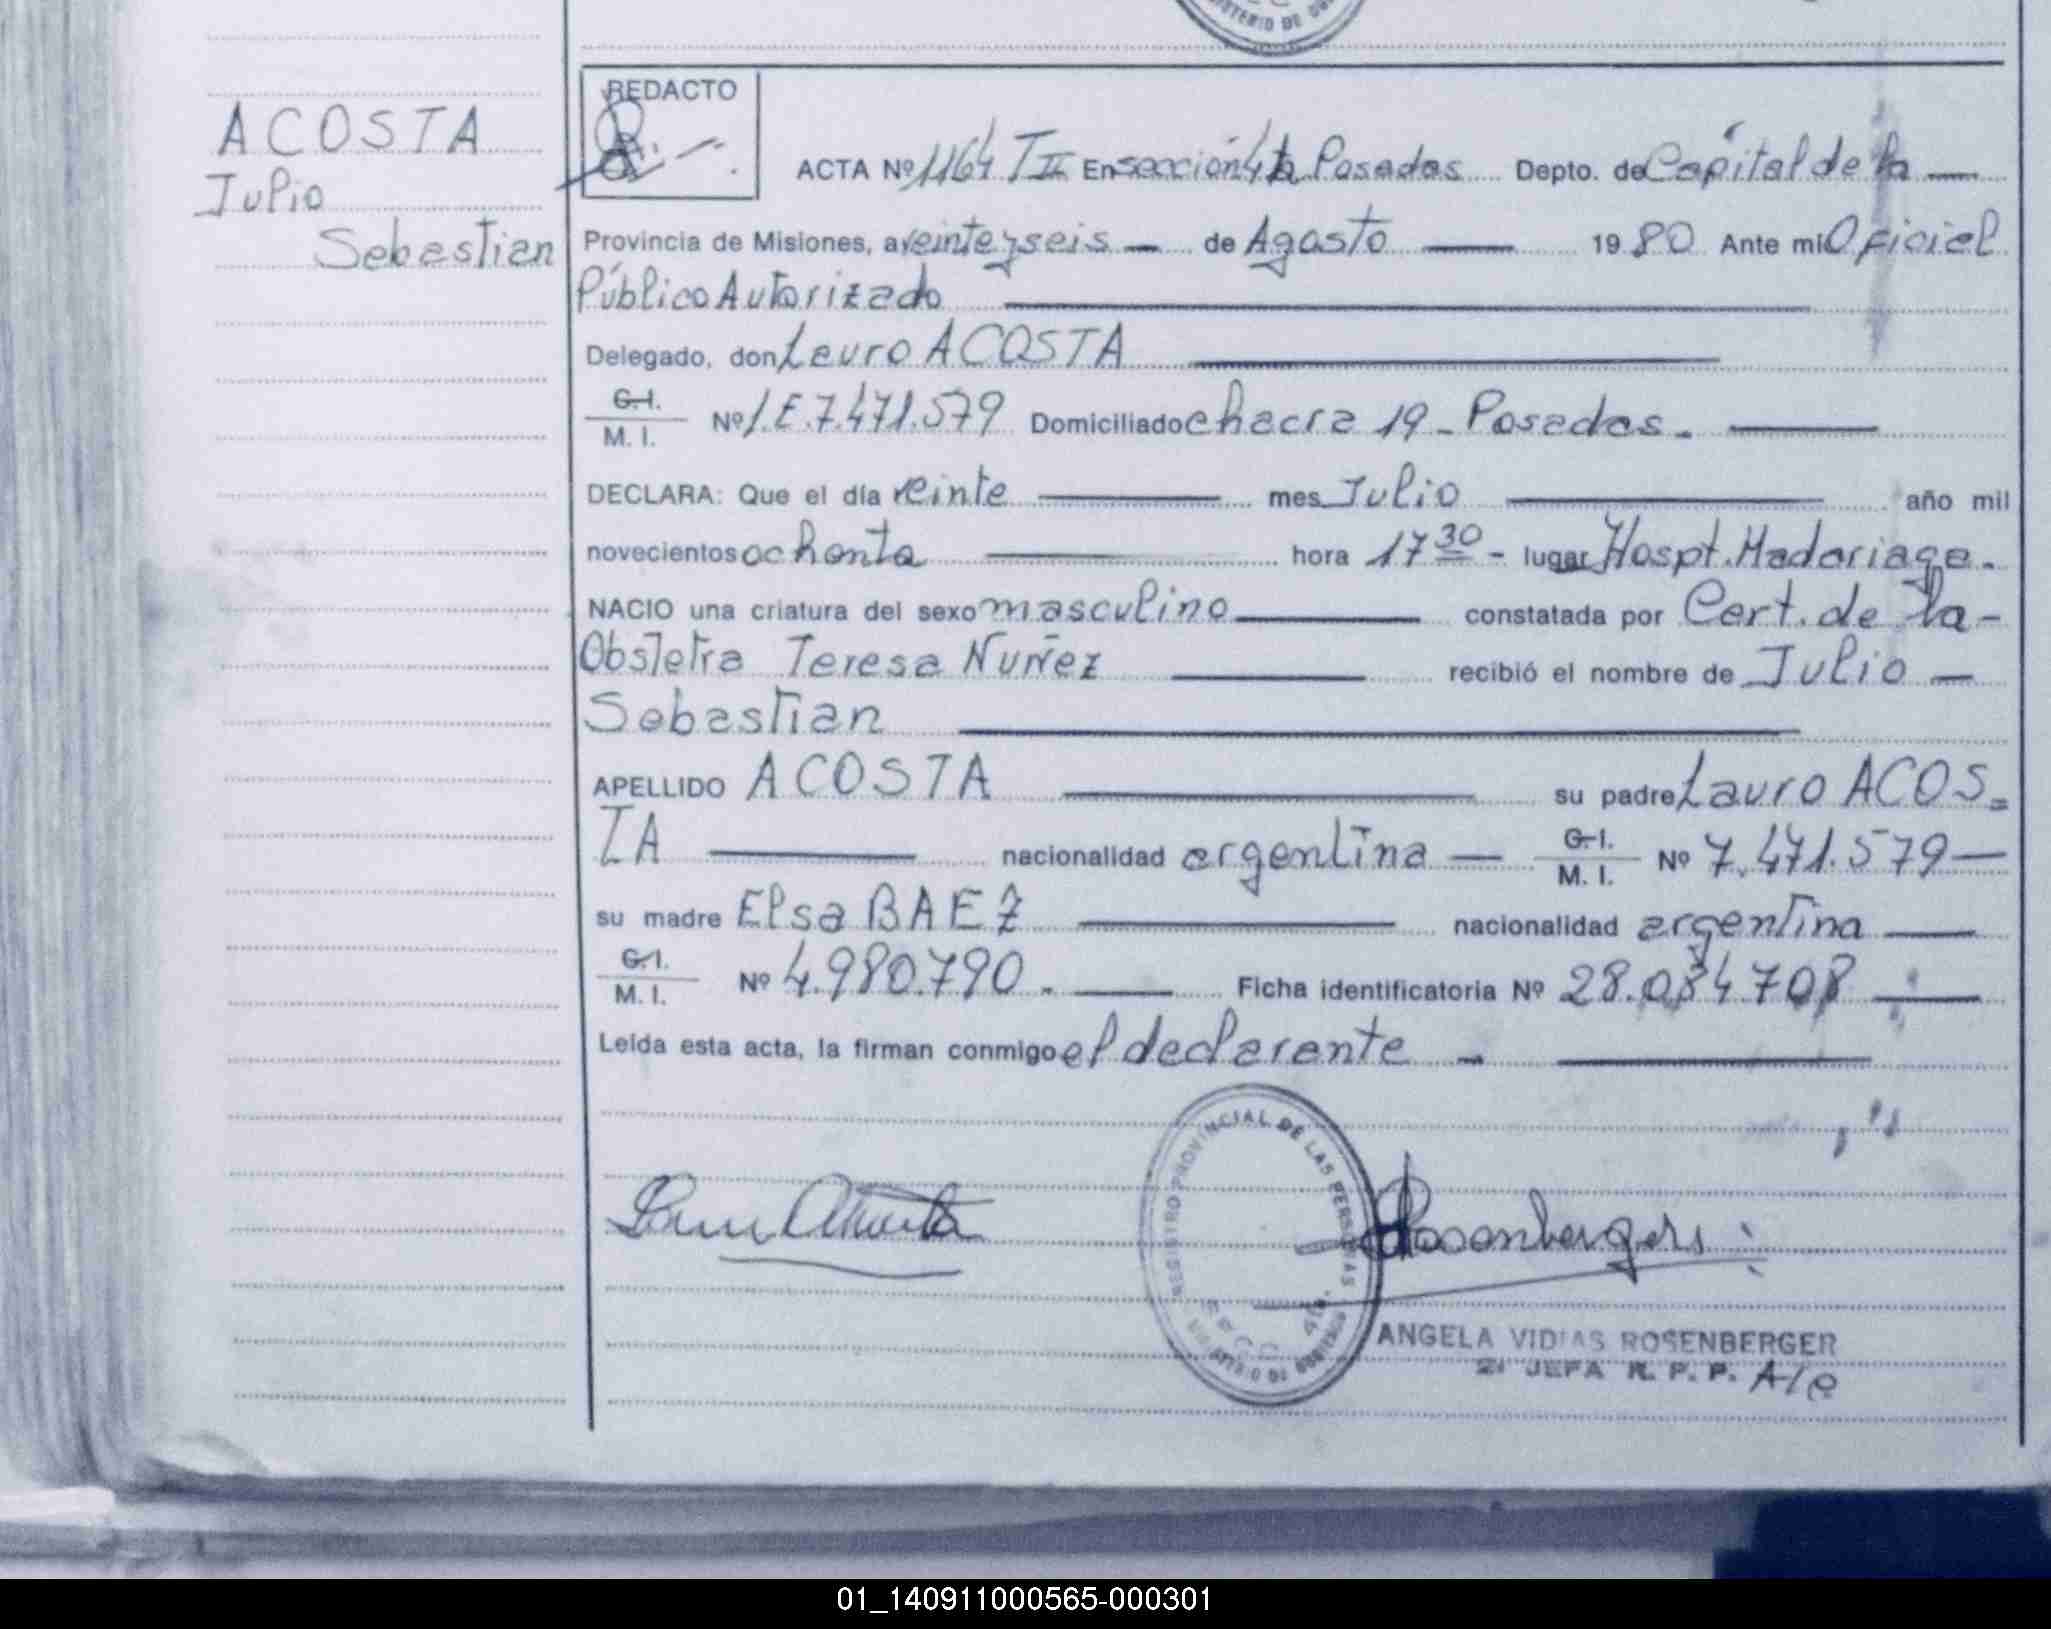 MINISTERIO DE GOB
ACOSTA
Julio
Sebastian
REDACTO
ACTA Nº 1164 T II En sección 4ta Posadas Depto. de Capital de la
Provincia de Misiones, a veinteyseis de Agosto 1980 Ante mi Oficial
Público Autorizado
Delegado, don Lauro ACOSTA
C.I.
M. I. Nº L.E.7.471.579 Domiciliado chacra 19 - Posadas.
DECLARA: Que el día veinte mes Julio año mil
novecientos ochenta hora 17 30 - lugar Hospt. Madariaga.
NACIO una criatura del sexo masculino constatada por Cert. de la -
Obstetra Teresa Nuñez recibió el nombre de Julio
Sebastian
APELLIDO ACOSTA su padre Lauro ACOS=
TA nacionalidad argentina C.I. M. I. Nº 7.471.579
su madre Elsa BAEZ nacionalidad argentina
C.I.
M. I. Nº 4.980.790. Ficha identificatoria Nº 28.084.708
Leída esta acta, la firman conmigo el declarante
REGISTRO PROVINCIAL DE LAS PERSONAS
Rosenberger
ANGELA VIDIAS ROSENBERGER
2ª JEFA R. P. P. A/C
01_140911000565-000301